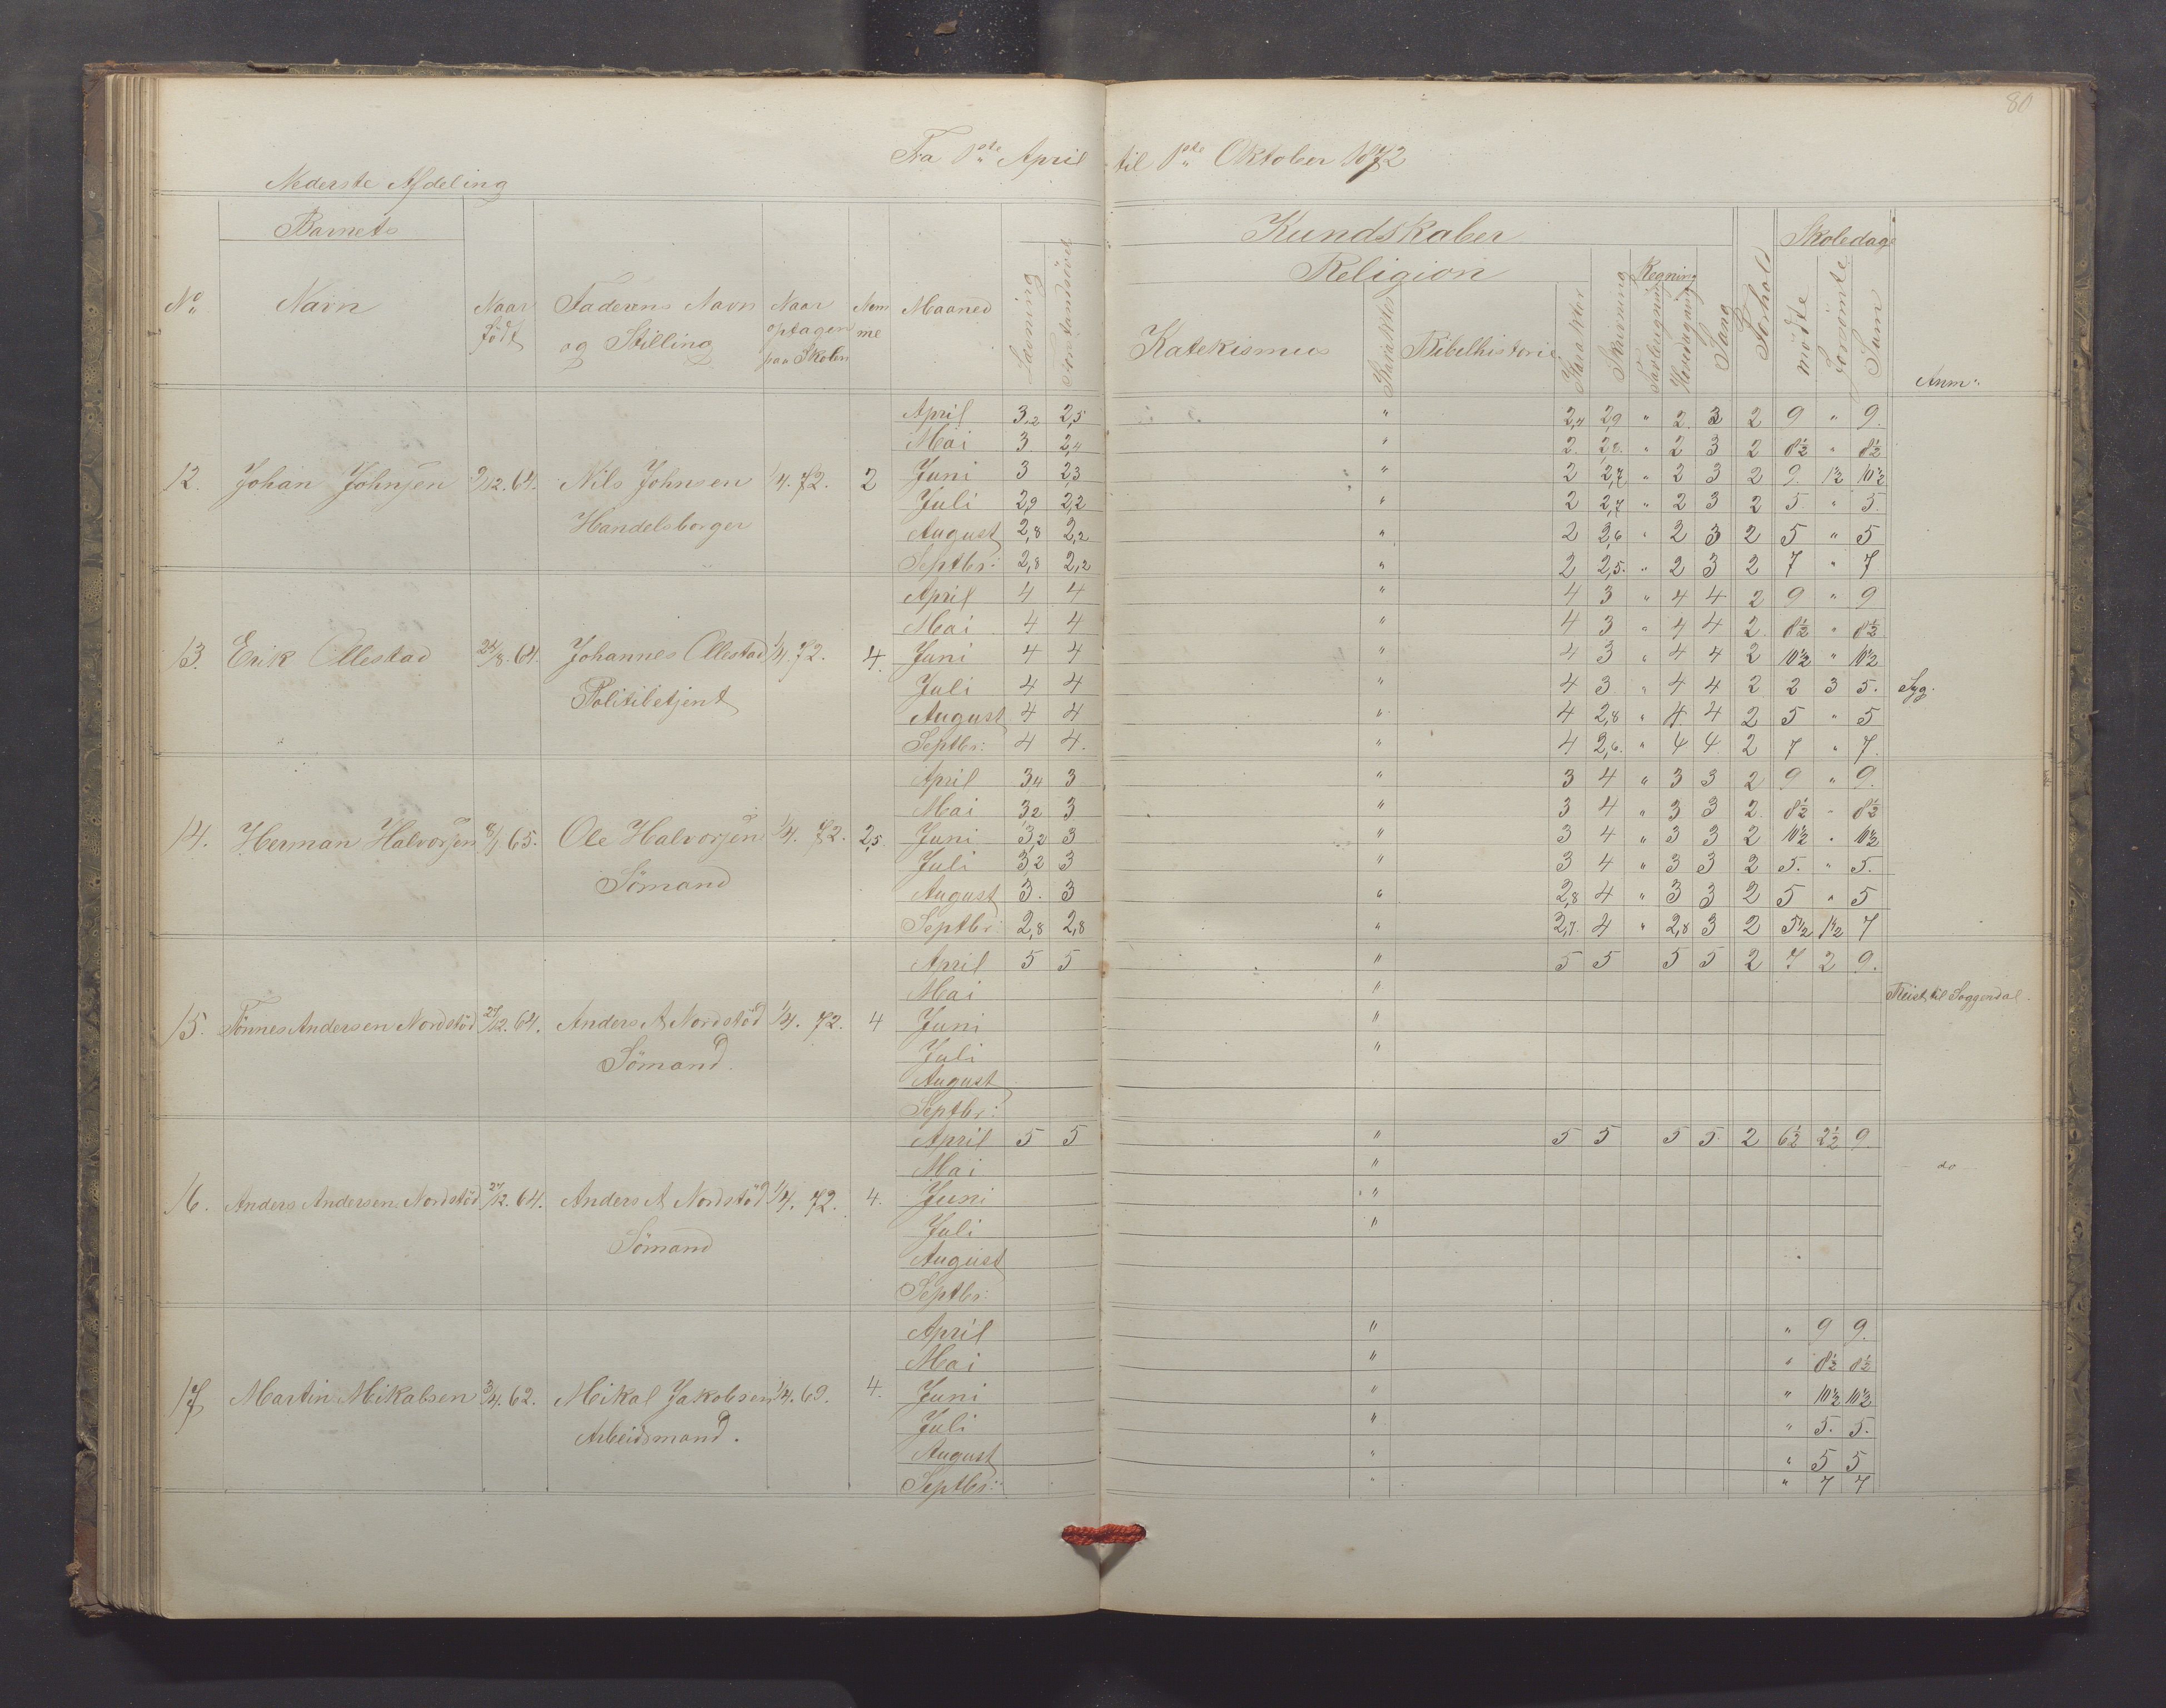 80
Fra 1ste April til 1ste Oktober 1872
Nederste Afdeling
Barnets Kundskaber Skoledage
Religion Regning
No Navn Naar Født Faderens Navn og Stilling Naar optagen paa Skolen Nem me Maaned Læsning Forstandsøvel Katekismus Karakter Bibelhistorie Karakter Skrivning Tavleregning Hovedregning Sang Forhold mødte forsømte Sum Anm:
April 3,2 2,5 " 2,4 2,9 " 2 3 2 9 " 9.
Mai 3 2,4 " 2. 2,8. " 2 3 2 8½ " 8½
12. Johan Johnsen 9/12.64. Nils Johnsen 1/4.72. 2 Juni 3 2,3 " 2 2,7 " 2 3 2 9. 1½ 10½
Juli 2,9 2,2 " 2 2,7 " 2 3 2 5 " 5.
Handelsborger August 2,8 2,2 " 2 2,6 " 2 3 2 5 " 5
Septbr: 2,8 2,2 " 2 2,5. " 2 3 2 7 " 7
April 4 4 " 4 3 " 4 4 2 9 " 9
Mai 4 4 " 4 3 " 4 4 2. 8½ " 8½
13. Erik Ollestad 24/8.64. Johannes Ollestad 1/4.72. 4. Juni 4 4 " 4 3 " 4 4 2 10½ " 10½
Politibetjent Juli 4 4 " 4 3 " 4 4 2 2 3 5. Syg.
August 4 4 " 4 2,8 " 4 4 2 5 " 5
Septbr: 4 4. " 4 2,6. " 4 4 2 7 " 7.
April 3,4 3 " 3 4 " 3 3 2 9 " 9.
Mai 3,2 3 " 3 4 " 3 3 2. 8½ " 8½
14. Herman Halvorsen 8/1 65. Ole Halvorsen 1/4. 72. 2,5. Juni 3,2 3 " 3 4 " 3 3 2 10½ " 10½
Juli 3,2 3 " 3 4 " 3 3 2 5. " 5.
Sömand August 3. 3 " 2,8 4 " 3 3 2 5 " 5
Septbr: 2,8 2,8 " 2,7. 4 " 2,8 3 2 5½ 1½ 7
April 5 5 " 5 5 5 5 2 7 2 9.
Mai " Reist til Soggendal.
15. Tönnes Andersen Nordstöd 27/12.64. Anders A Nordstöd 1/4. 72. 4 Juni "
Sömand. Juli "
August
Septbr:
April 5 5 " 5 5 5 5 2 6½ 2½ 9
Mai " do
16. Anders Andersen Nordstöd 27/12.64. Anders A Nordstöd 1/4. 72. 4. Juni "
Sömand Juli "
August
Septbr:
April " " 9 9.
Mai " " 8½ 8½
17 Martin Mikalsen 3/4.62. Mikal Jakobsen 1/4.69. 4. Juni " " 10½ 10½
Arbeidsmand. Juli " " 5. 5.
August " " 5 5
Septbr: " " 7 7